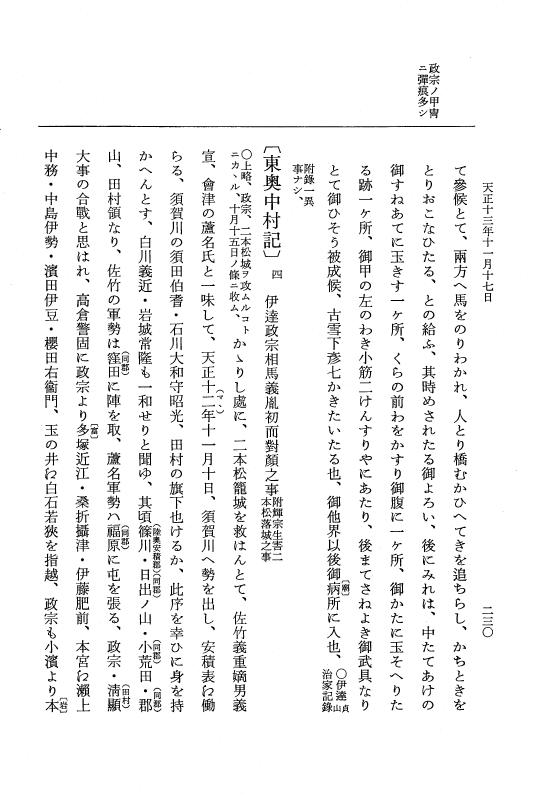 天正十三年十一月十七日
二三〇
政宗ノ甲冑
ニ彈痕多シ
て參候とて、兩方へ馬をのりわかれ、人とり橋むかひへてきを追ちらし、かちときを
とりおこなひたる、との給ふ、其時めされたる御よろい、後にみれは、中たてあけの
御すねあてに玉きす一ケ所、くらの前わをかすり御腹に一ケ所、御かたに玉そへりた
る跡一ケ所、御甲の左のわき小筋二けんすりやにあたり、後まてさねよき御武具なり
とて御ひそう被成候、古雪下彥七かきたいたる也、御他界以後御病〔廟〕所に入也、○伊達貞山治家記錄
附錄一異
事ナシ、
〔東奧中村記〕四 伊達政宗相馬義胤初而對顏之事附輝宗生害二本松落城之事
○上略、政宗、二本松城ヲ攻ムルコトニカヽル、十月十五日ノ條ニ收ム、かゝりし處に、二本松籠城を救はんとて、佐竹義重嫡男義
宣、會津の蘆名氏と一味して、天正十二(マヽ)年十一月十日、須賀川へ勢を出し、安積表わ働
らる、須賀川の須田伯耆・石川大和守昭光、田村の旗下也けるか、此序を幸ひに身を持
かへんとす、白川義近・岩城常隆も一和せりと聞ゆ、其頃篠川(陸奧安積郡)・日出ノ山(同郡)・小荒田(同郡)・郡
山(同郡)、田村領なり、佐竹の軍勢は窪田(同郡)に陣を取、蘆名軍勢ハ福原(同郡)に屯を張る、政宗・淸顯(田村)
大事の合戰と思はれ、高倉警固に政宗より多〔富〕塚近江・桑折攝津・伊藤肥前、本宮わ瀨上
中務・中島伊勢・濱田伊豆・櫻田右衞門、玉の井わ白石若狹を指越、政宗も小濱より本〔岩〕